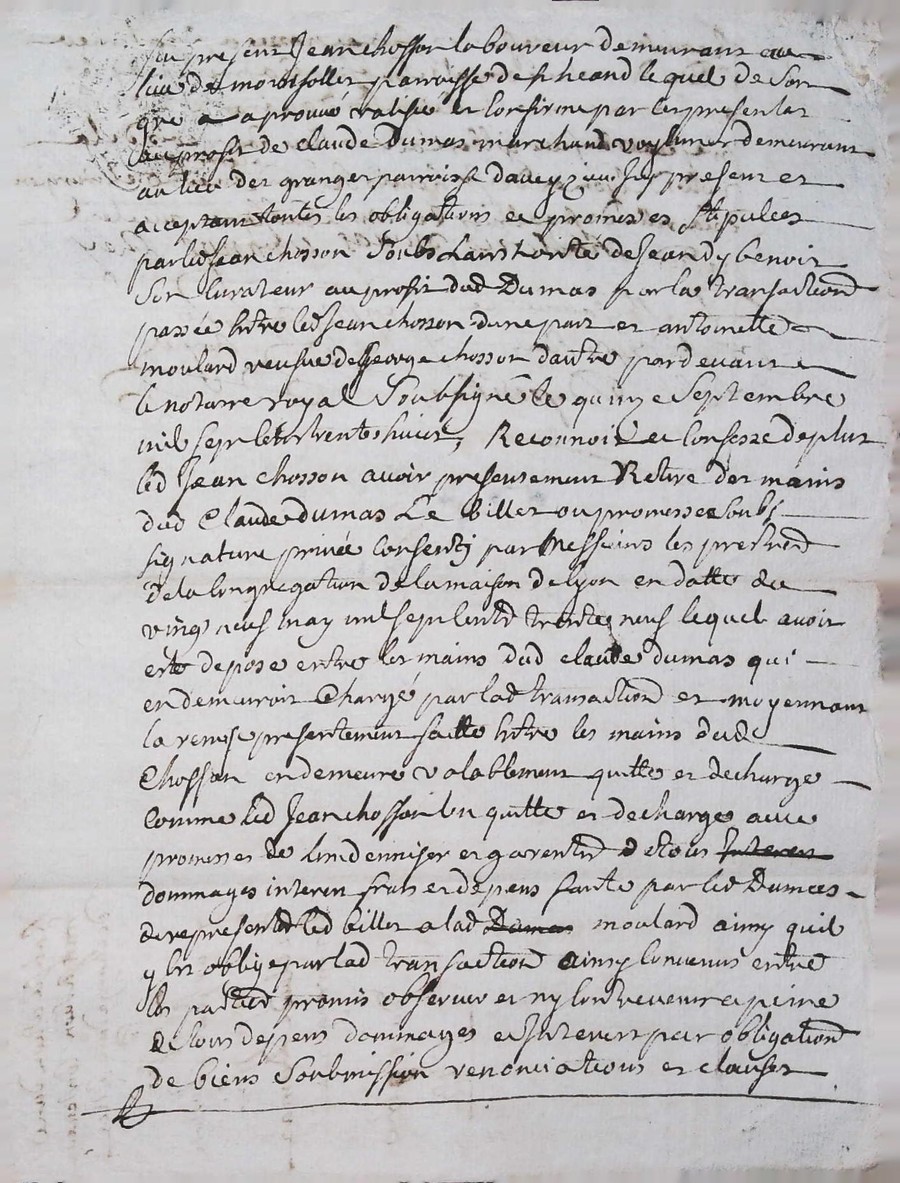 fut present Jean chosson laboureur demeurant au
lieu de parroisse de lequel de Son
gré a aprouvé ratifié et Confirme par les presentes
au proffit de Claude Dumas marchand demeurant
au lieu des granges parroisse daveyzieu Icy present et
acceptant toutes les obligations et promesses stipulées
par led Jean chosson Soubs Lauthorité de Jean dybenoit
Son Curateur au profit dud Dumas par la transaction
passée Entre led Jean chosson dune part et antoinette
moulard veufve de George chosson dautre pardevant
le notaire royal Soubsigné le quinze Septembre
mil sept Cents trente huict, Reconnoit et Confesse deplus
led Jean Chosson avoir presentement Retiré des mains
dud Claude dumas Le billet ou promesse soubs
signature privée Consenty par Messieurs les prestres
de la Congregation de la maison de lyon en datte du
vingt neuf may mil sept Cents trente neuf lequel avoit
esté deposé entre les mains dud claude dumas qui
en demeuroit Chargé par lad transaction et moyennant
la remise presentement faitte Entre les mains dud
Chosson en demeure valablement quitte et decharge
Comme led Jean chosson len quitte et decharge avec
promesses de Lindemniser et garentir de tous Interets
dommages interets frais et depens faute par led Dumas
de representer led billet a lad Dumas moulard ainsy quil
y est obligé par lad transaction ainsy Convenu entre
les parties promis observer et ny Contrevenir a peine
de tous depens dommages et Interets par obligation
de biens Soubmission renonciations et clauses